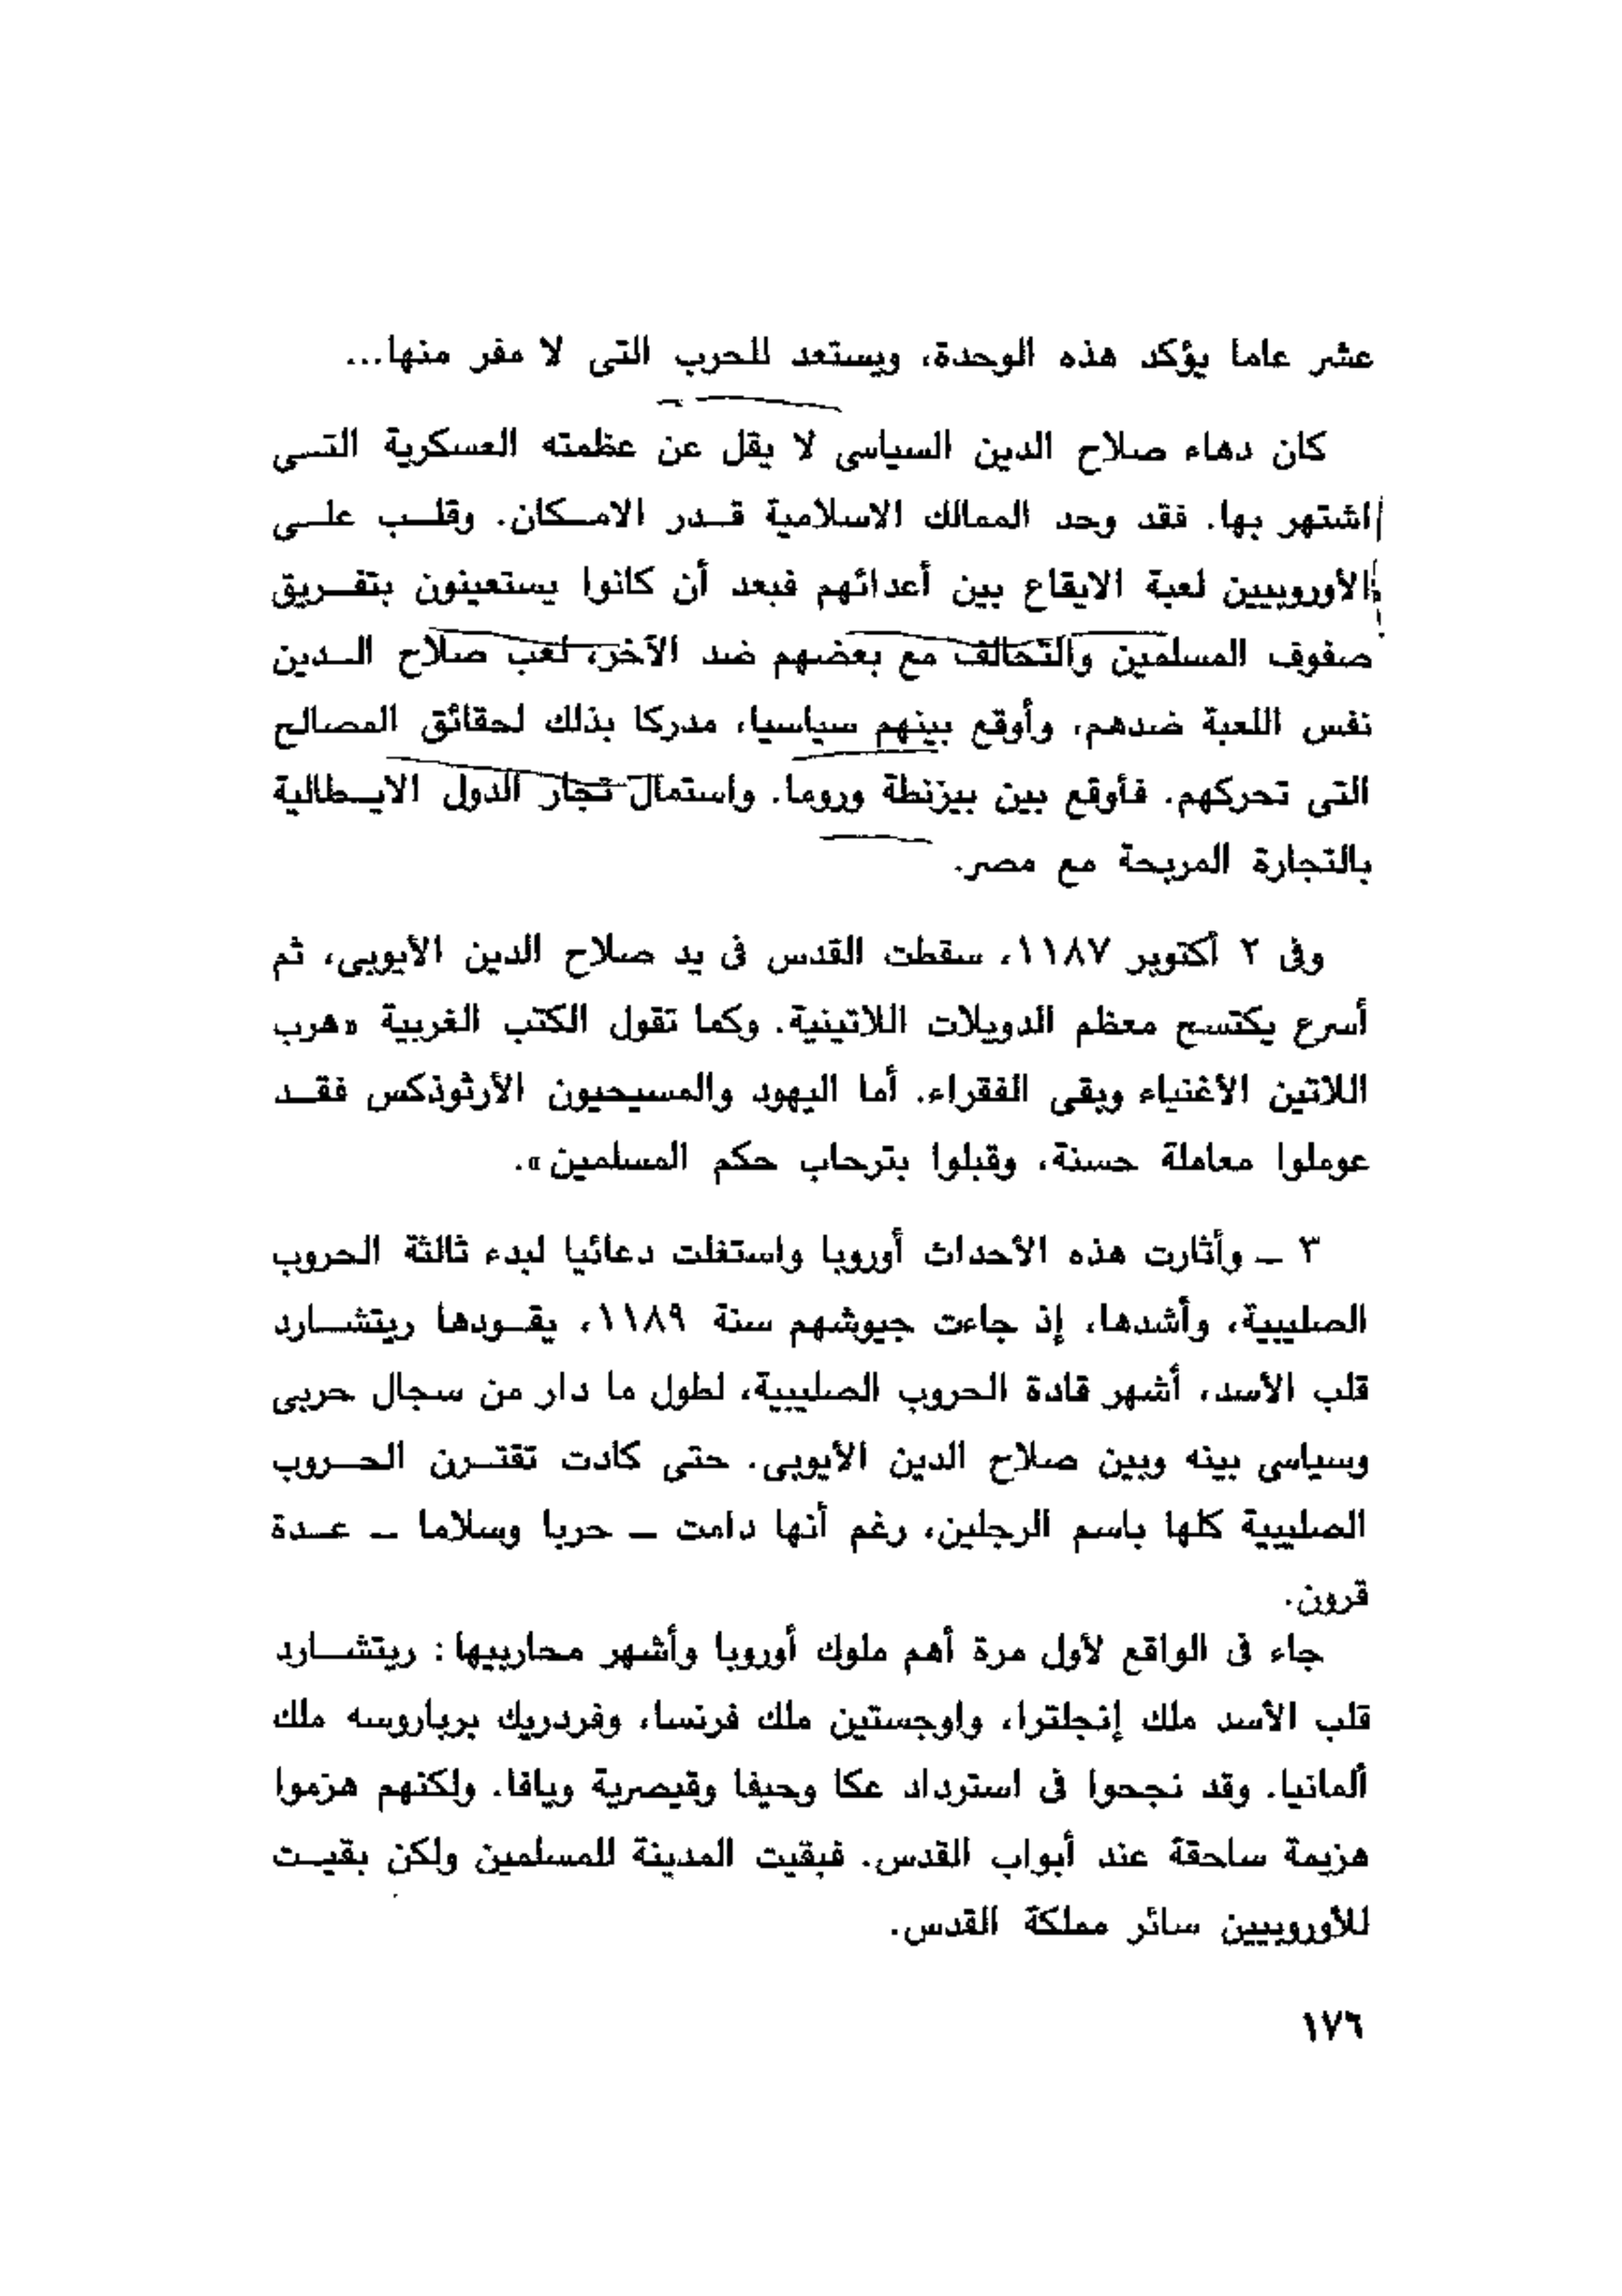 عشر عاما يؤكد هذه الوحدة، ويستعد للحرب التى لا مفر منها...
كان دهاء صلاح الدين السياسى لا يقل عن عظمته العسكرية التى
اشتهر بها. فقد وحد الممالك الاسلامية قدر الامكان. وقلب على
الأوروبيين لعبة الايقاع بين أعدائهم فبعد أن كانوا يستعينون بتفريق
صفوف المسلمين والتحالف مع بعضهم ضد الآخر، لعب صلاح الدين
نفس اللعبة ضدهم، وأوقع بينهم سياسيا، مدركا بذلك لحقائق المصالح
التى تحركهم. فأوقع بين بيزنطة وروما. واستمال تجار الدول الايطالية
بالتجارة المربحة مع مصر.
وفى ٢ أكتوبر ١١٨٧، سقطت القدس فى يد صلاح الدين الأيوبى، ثم
أسرع يكتسح معظم الدويلات اللاتينية. وكما تقول الكتب الغربية «هرب
اللاتين الأغنياء وبقى الفقراء. أما اليهود والمسيحيون الأرثوذكس فقد
عوملوا معاملة حسنة، وقبلوا بترحاب حكم المسلمين».
٣ ـ وأثارت هذه الأحداث أوروبا واستغلت دعائيا لبدء ثالثة الحروب
الصليبية، وأشدها، إذ جاءت جيوشهم سنة ١١٨٩، يقودها ريتشارد
قلب الأسد، أشهر قادة الحروب الصليبية، لطول ما دار من سجال حربى
وسياسى بينه وبين صلاح الدين الأيوبى. حتى كادت تقترن الحروب
الصليبية كلها باسم الرجلين، رغم أنها دامت ـ حربا وسلاما ـ عدة
قرون.
جاء فى الواقع لأول مرة أهم ملوك أوروبا وأشهر محاربيها : ريتشارد
قلب الأسد ملك إنجلترا، واوجستين ملك فرنسا، وفردريك برباروسه ملك
ألمانيا. وقد نجحوا فى استرداد عكا وحيفا وقيصرية ويافا. ولكنهم هزموا
هزيمة ساحقة عند أبواب القدس. فبقيت المدينة للمسلمين ولكن بقيت
للأوروبيين سائر مملكة القدس.
١٧٦